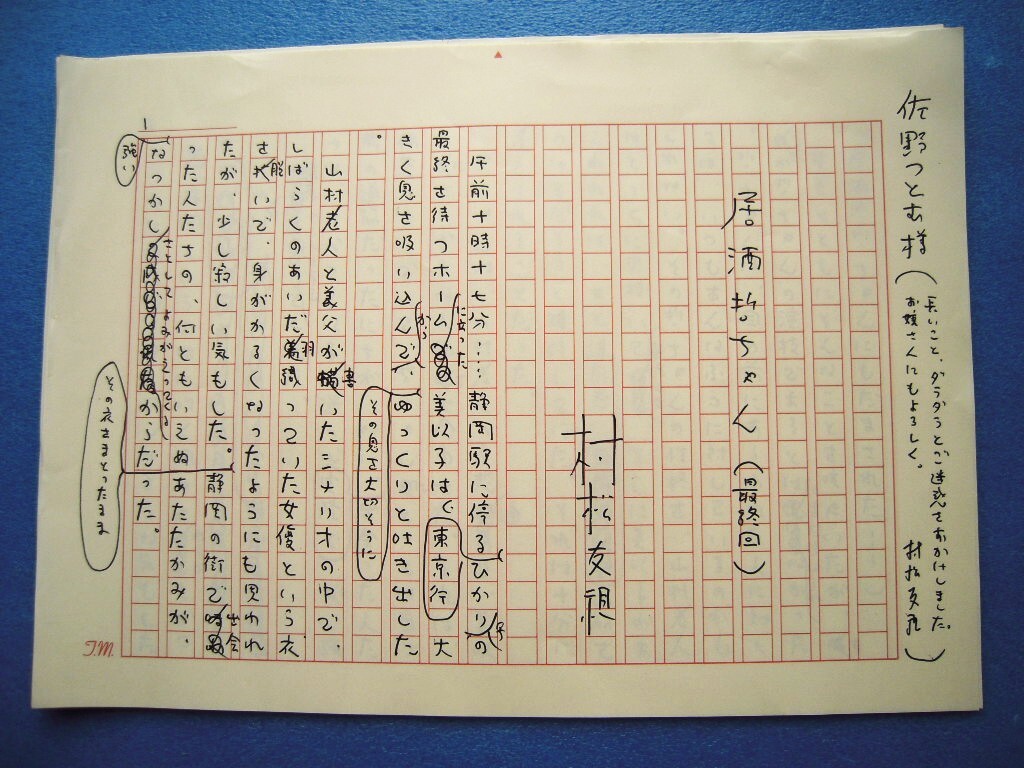 佐野つとむ様
(長いこと、ダラダラとご迷惑をおかけしました。
お嬢さんにもよろしく。 村松友視)
居酒哲ちゃん(最終回)
村松友視
午前十時十七分……静岡駅に停るひかりの
に立った
最終を待つホーム 美以子は、東京行 大
きく息を吸い込んで、ゆっくりと吐き出した
から
。
その息を大切そうに
山村老人と義父が書いたシナリオの中で、
しばらくのあいだ羽織っていた女優という衣
を脱いで、身がかるくなったようにも思われ
たが、少し寂しい気もした。静岡の街で出会
った人たちの、何ともいえぬあたたかみが、
なつかし からだった。
さとしてよみがえってくる
強い
その衣をまとったまま
1
T.M.